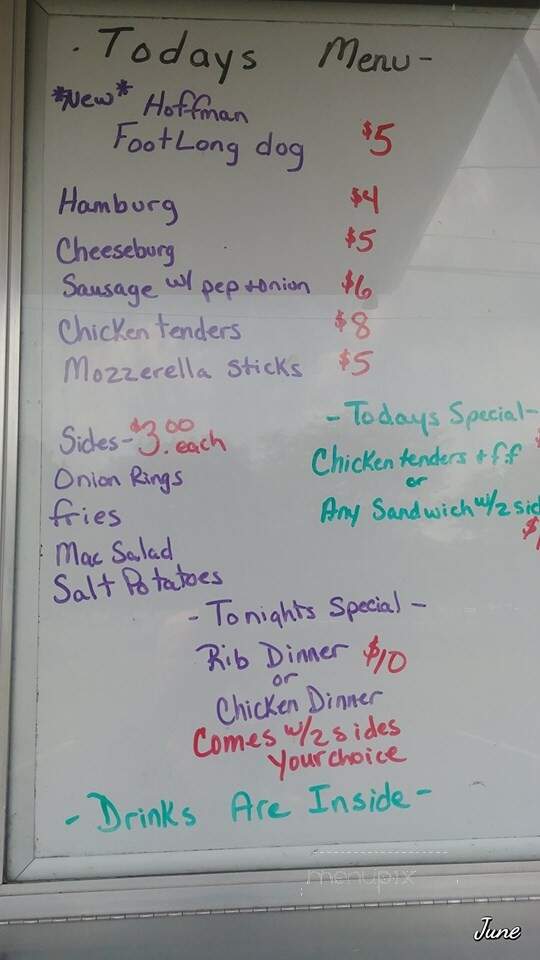 . Todays Menu-
*New* Hoffman
FootLong dog $5
Hamburg $4
Cheeseburg $5
Sausage w/ pep + onion $6
Chicken tenders $8
Mozzerella Sticks $5
Sides- $3.00 each
Onion Rings
fries
Mac Salad
Salt Potatoes
- Todays Special-
Chicken tenders + f.f
or
Any Sandwich w/2 sid
- Tonights Special -
Rib Dinner $10
or
Chicken Dinner
Comes w/2 sides
Your choice
- Drinks Are Inside -
menupix
June